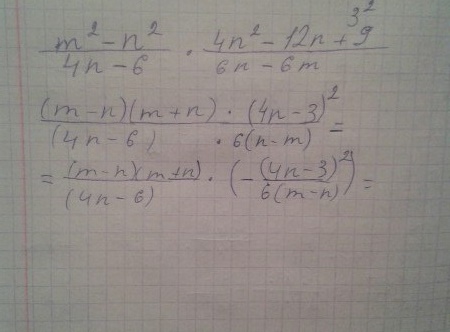 (m² - n²)/(4n - 6) · (4n² - 12n + 9 3²)/(6n - 6m)
((m - n)(m + n) · (4n - 3)²)/((4n - 6) · 6(n - m)) =
= ((m - n)(m + n))/((4n - 6)) · (-(4n - 3)²/(6(m - n))) =